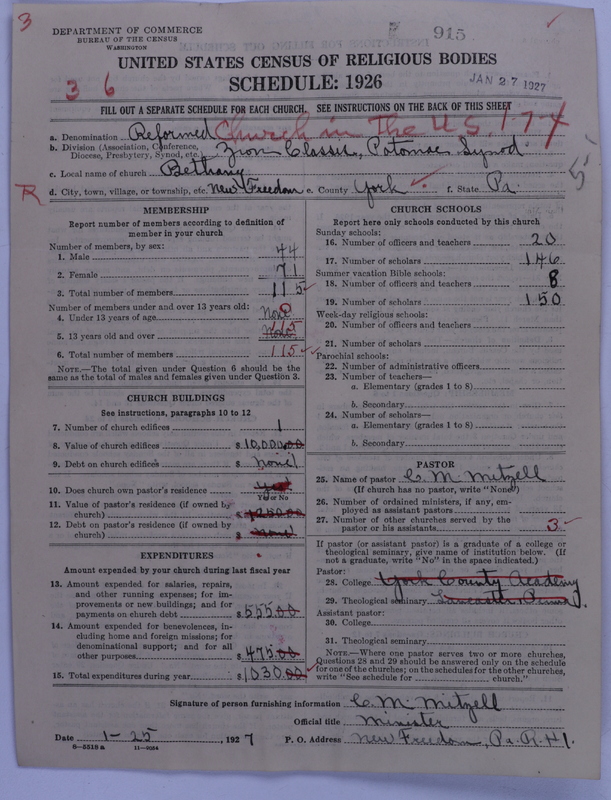 3
DEPARTMENT OF COMMERCE
BUREAU OF THE CENSUS
WASHINGTON
915
UNITED STATES CENSUS OF RELIGIOUS BODIES
3 6
SCHEDULE: 1926
JAN 27 1927
FILL OUT A SEPARATE SCHEDULE FOR EACH CHURCH. SEE INSTRUCTIONS ON THE BACK OF THIS SHEET
a. Denomination Reformed Church in The U.S. 1-7-4
b. Division (Association, Conference, Diocese, Presbytery, Synod, etc.) Zion Classis, Potomac Synod
c. Local name of church Bethany
d. City, town, village, or township, etc. New Freedom e. County York f. State Pa.
R
5
MEMBERSHIP
Report number of members according to definition of
member in your church
Number of members, by sex:
1. Male 44
2. Female 71
3. Total number of members 115
Number of members under and over 13 years old:
4. Under 13 years of age None 0
5. 13 years old and over None 115
6. Total number of members 115
NOTE.—The total given under Question 6 should be the
same as the total of males and females given under Question 3.
CHURCH BUILDINGS
See instructions, paragraphs 10 to 12
7. Number of church edifices 1
8. Value of church edifices $ 10,000.00
9. Debt on church edifices $ none
10. Does church own pastor's residence yes
Yes or No
11. Value of pastor's residence (if owned by
church) $
12. Debt on pastor's residence (if owned by
church) $ none
EXPENDITURES
Amount expended by your church during last fiscal year
13. Amount expended for salaries, repairs,
and other running expenses; for im-
provements or new buildings; and for
payments on church debt $ 555.00
14. Amount expended for benevolences, in-
cluding home and foreign missions; for
denominational support; and for all
other purposes $ 475.00
15. Total expenditures during year $ 1030.00
CHURCH SCHOOLS
Report here only schools conducted by this church
Sunday schools:
16. Number of officers and teachers 20
17. Number of scholars 146
Summer vacation Bible schools:
18. Number of officers and teachers 8
19. Number of scholars 150
Week-day religious schools:
20. Number of officers and teachers
21. Number of scholars
Parochial schools:
22. Number of administrative officers
23. Number of teachers—
a. Elementary (grades 1 to 8)
b. Secondary
24. Number of scholars—
a. Elementary (grades 1 to 8)
b. Secondary
PASTOR
25. Name of pastor C. M. Mitzell
(If church has no pastor, write "None")
26. Number of ordained ministers, if any, em-
ployed as assistant pastors
27. Number of other churches served by the
pastor or his assistants 3
If pastor (or assistant pastor) is a graduate of a college or
theological seminary, give name of institution below. (If
not a graduate, write "No" in the space indicated.)
Pastor:
28. College York County Academy
29. Theological seminary Lancaster, Penna.
Assistant pastor:
30. College
31. Theological seminary
NOTE.—Where one pastor serves two or more churches,
Questions 28 and 29 should be answered only on the schedule
for one of the churches; on the schedules for the other churches,
write "See schedule for church."
Signature of person furnishing information C. M. Mitzell
Official title Minister
Date 1-25, 1927 P. O. Address New Freedom, Pa. R #1.
8-5518 a 11-9054